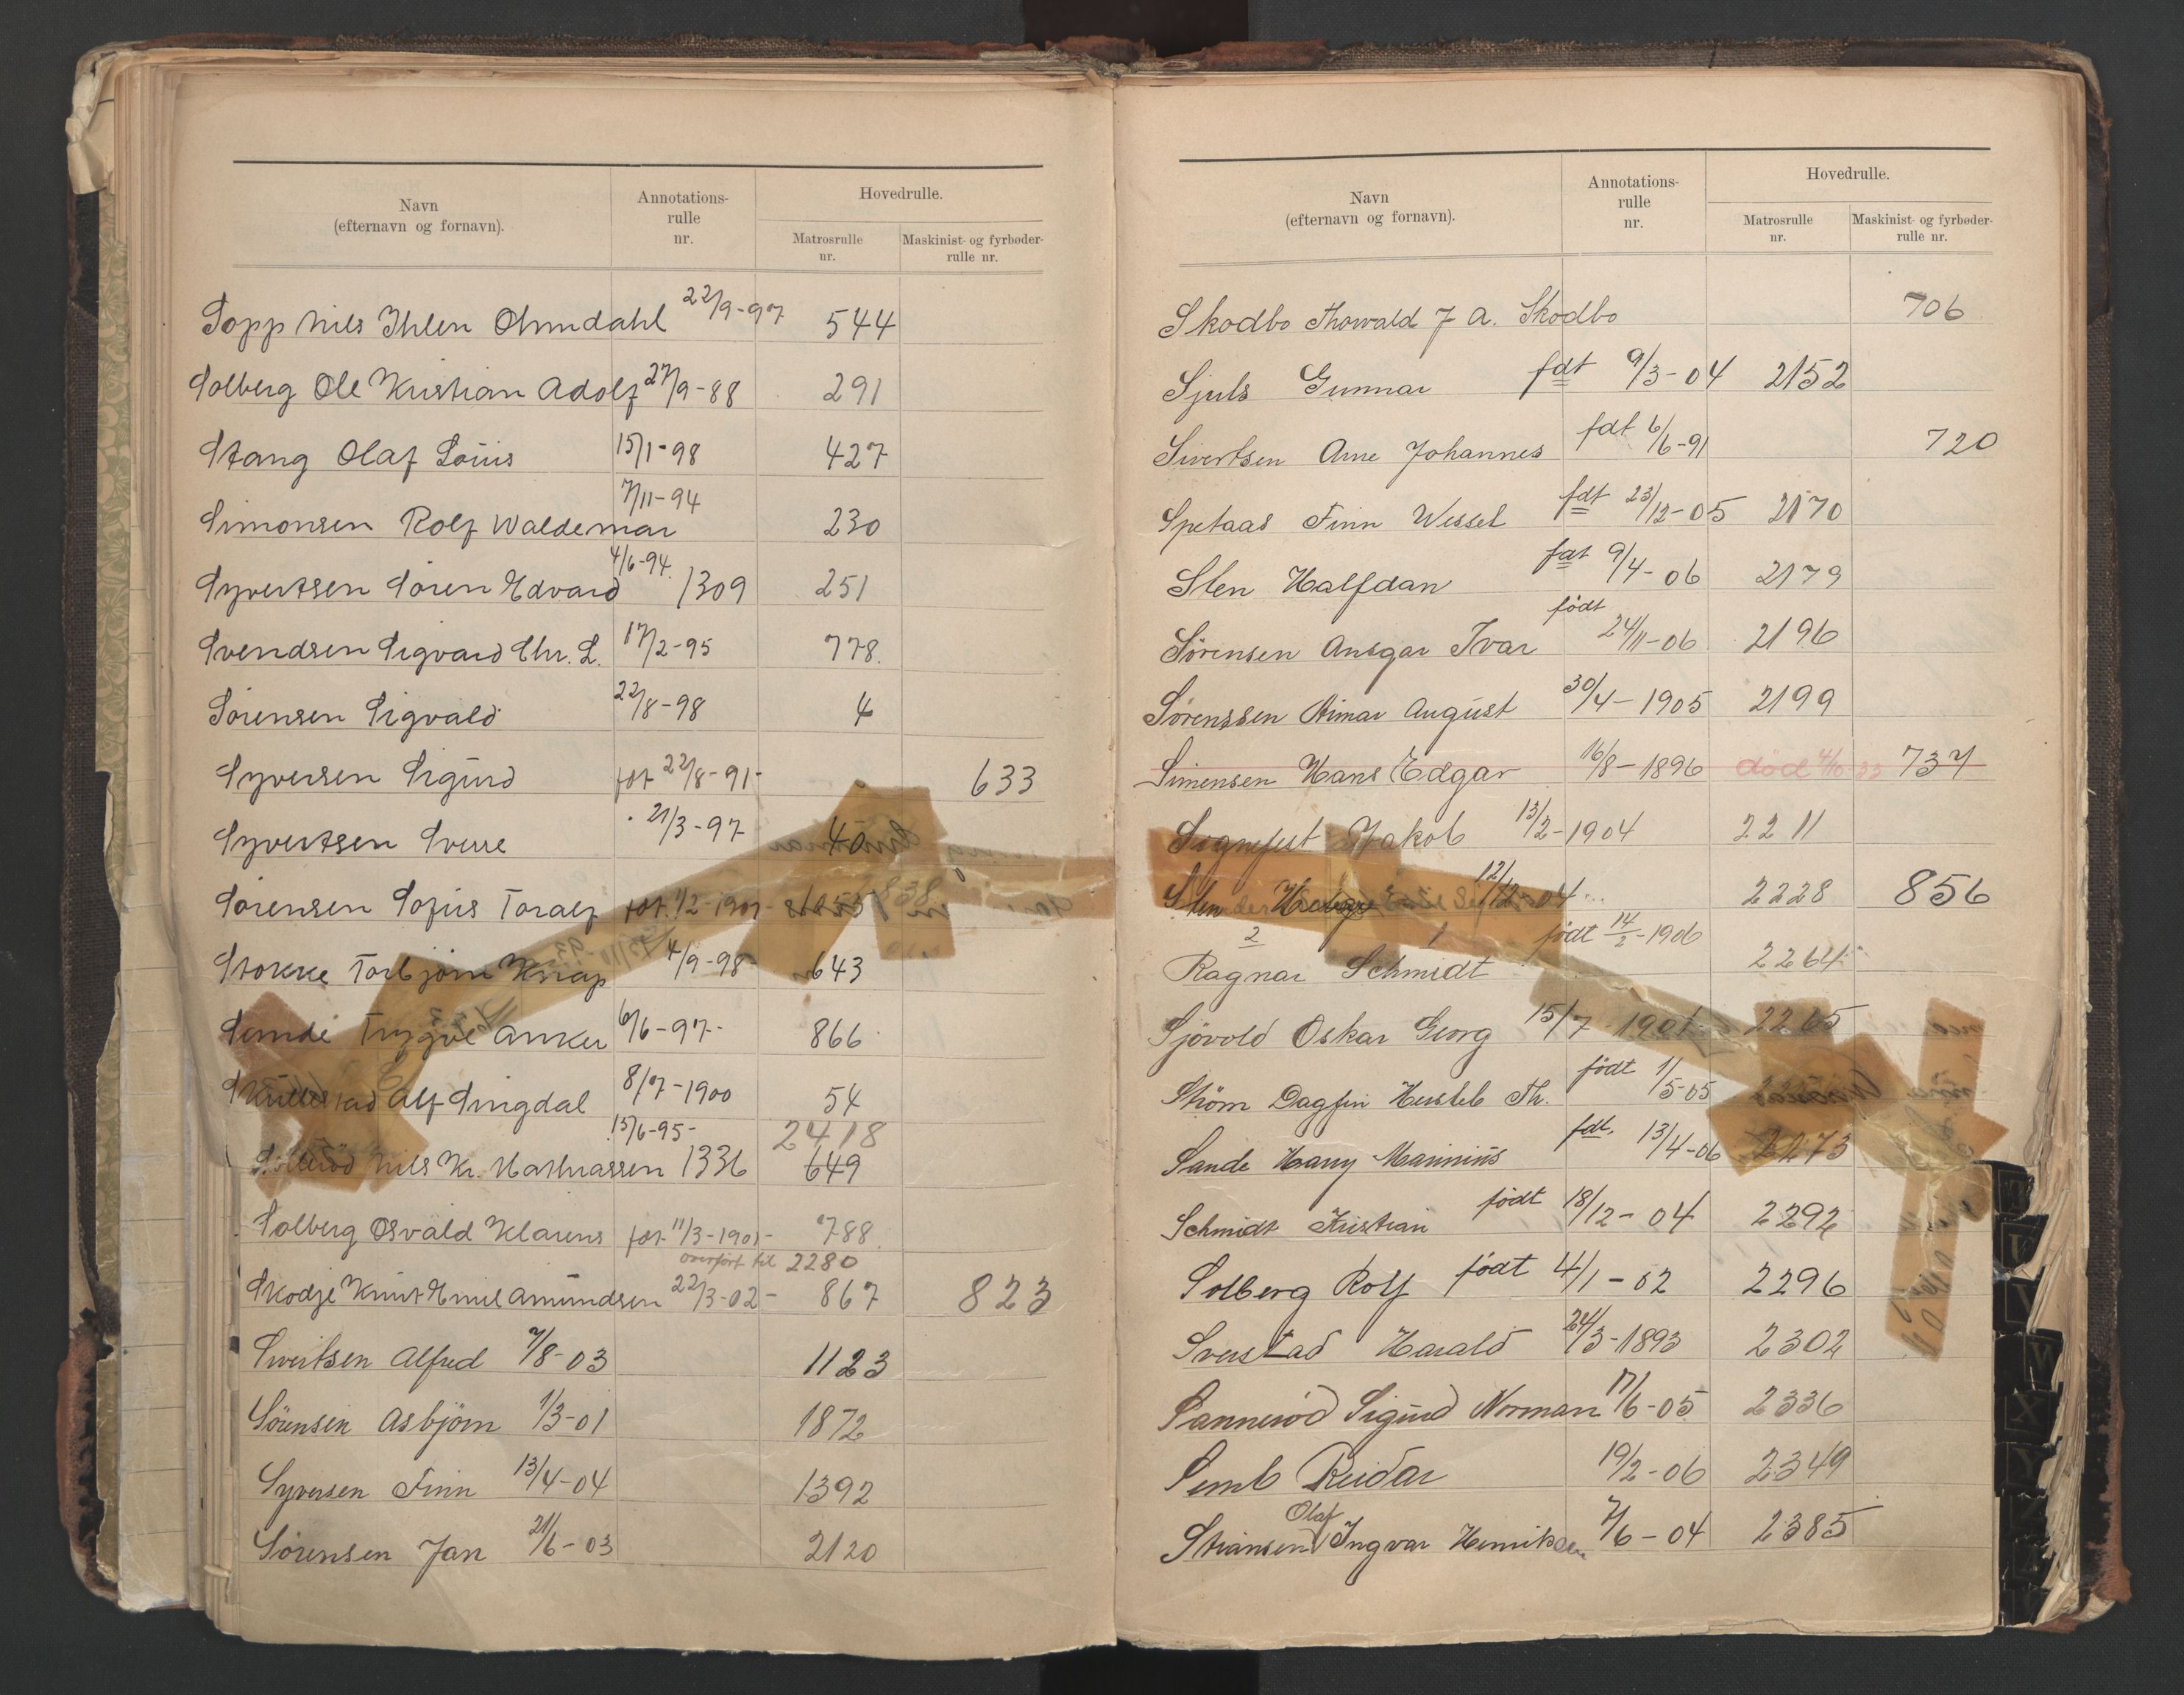 Navn
(efternavn og fornavn).
Annotations-
rulle
nr.
Hovedrulle.
Matrosrulle
nr.
Maskinist- og fyrbøder-
rulle nr.
Sopp Nils Ihlen Omdahl 22/9-97 544
Solberg Ole Kristian Adolf 27/9-88 291
Stang Olaf Louis 15/1-98 427
Simonsen Rolf Waldemar 7/11-94 230
Syvertsen Sören Edvard 4/6-94. 1309 251
Svendsen Sigvard Chr. L. 17/2-95 778.
Sörensen Sigvald 22/8-98 4
Syversen Sigurd föt 22/8-91- 633
Syvertsen Sverre 21/3-97 40
Sörensen Sofus Toralf föt. 1/2-1901-
Stokke Torbjörn Knap 4/9-98 643
Trygve Anker 6/6-97- 866
Alf Singdal 8/7-1900 54
15/6-95- 2418
Nils Kr. Mathiassen 1336 649
Solberg Osvald Klarens föt 11/3-1901- 788
overført til 2280
Skodje Knut Emil Amundsen 22/3-02- 867 823
Sivertsen Alfred 7/8-03 1123
Sörensen Asbjörn 1/3-01 1872
Syversen Finn 13/4-04 1392
Sörensen Jan 21/6-03 2120
Navn
(efternavn og fornavn).
Annotations-
rulle
nr.
Hovedrulle.
Matrosrulle
nr.
Maskinist- og fyrbøder-
rulle nr.
Skodbo Thorvald J A. Skodbo 706
Sjuls Gunnar fdt 9/3-04 2152
Sivertsen Arne Johannes fdt 6/6-91 720
Spetaas Finn Wessel fdt 23/12-05 2170
Sten Halfdan fdt 9/4-06 2179
Sörensen Ansgar Ivar født 24/11-06 2196
Sörenssen Aimar August 30/4-1905 2199
Simensen Hans Edgar 16/8-1896 död 737
Jakob 13/2-1904 2211
Sten 12/12-04 2228 856
2 1 födt 14/2-1906
Ragnar Schmidt 2264
Sjövold Oskar Georg 15/7-1901 2265
Ström Dagfin Th. födt 1/5-05
Sande Harry Marinius fdt. 13/4-06 2273
Schmidt Kristian födt 18/12-04 2292
Solberg Rolf födt 4/1-02 2296
Sverstad Harald 24/3-1893 2302
Sanneröd Sigurd Norman 17/6-05 2336
Semb Reidar 19/2-06 2349
Olaf
Stiansen Ingvar Henriksen 7/6-04 2385